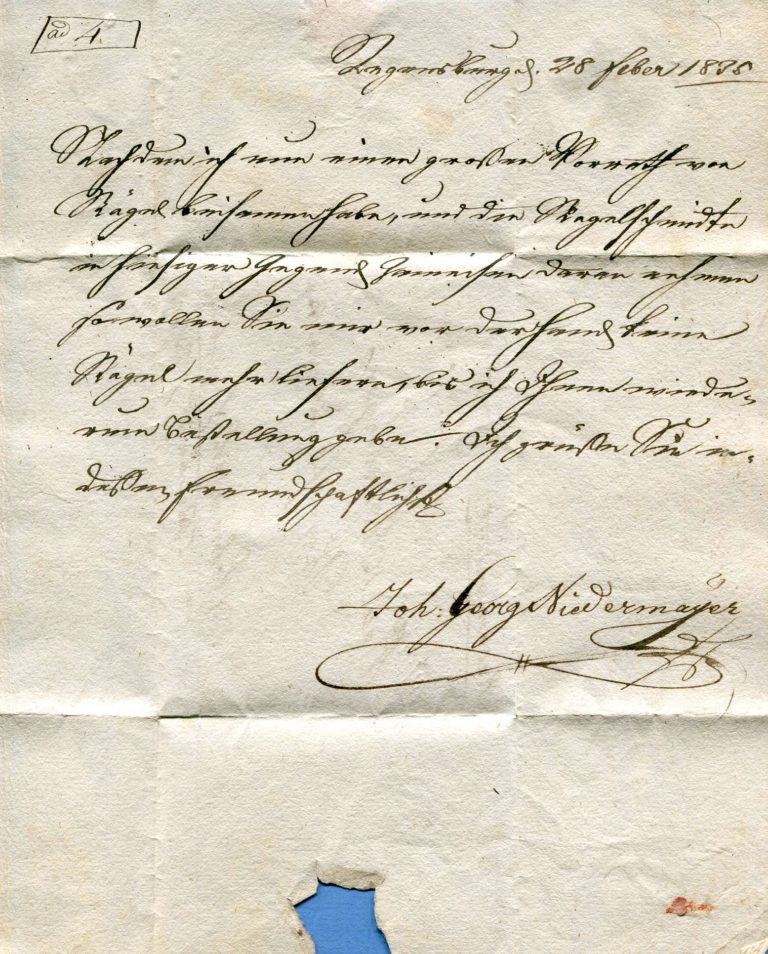 ad 4.
Regensburg d. 28 Feber 1838
Nachdem ich nun einen großen Vorrath von
Nägel beisamen habe, und die Nagelschmidte
in hiesiger Gegend daran nehmen
so wollen Sie mir vor der Hand keine
Nägel mehr liefern, bis ich Ihnen wiede-
rum Bestellung gebe. Ich grüße Sie in-
dessen freundschaftlichst
Joh: Georg Niedermayer